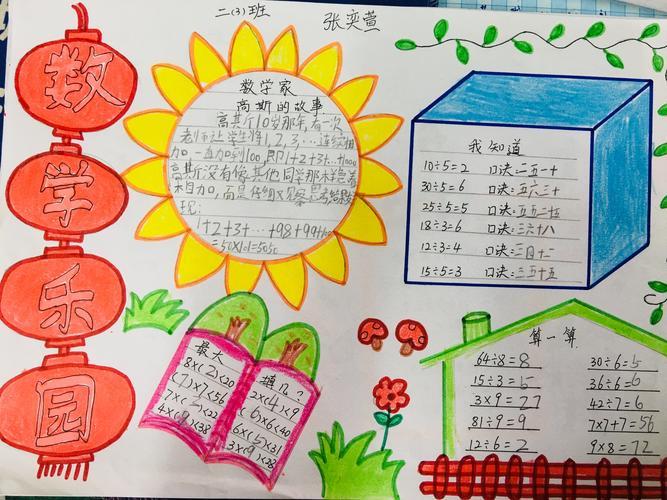 二(3)班
张奕萱
数学乐园
数学家
高斯的故事
高斯10岁那年,有一次
老师让学生将1,2,3,…连续相
加一直加到100,即1+2+3+…+100。
高斯没有像其他同学那样急着
相加,而是仔细观察思考
现:
1+2+3+…+98+99+100
=50×101=5050
我知道
10÷5=2 口诀:二五一十
30÷5=6 口诀:五六三十
25÷5=5 口诀:五五二十五
18÷3=6 口诀:三六十八
12÷3=4 口诀:三四十二
15÷5=3 口诀:三五十五
最大
8×(2)<20
(7)×7<56
7×(3)<22
4×(9)<38
填几?
2×(4)<9
(6)×6<40
6×(5)<31
3×(9)<28
算一算
64÷8=8
15÷3=5
3×9=27
81÷9=9
12÷6=2
30÷6=5
36÷6=6
42÷7=6
7×7+7=56
9×8=72